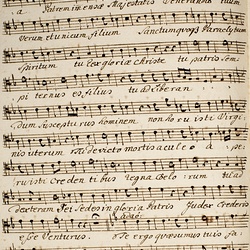 Patrem immensae Majestatis Venerandum tuum
Verum et unicum filium Sanctum quoqs Paraclytum
Spiritum tu Rex gloriae Christe tu patris Sem
piternus es filius tu ad liberan
dum suscepturus hominem non horruisti Virgi
nis uterum tu devicto mortis aculeo a pe
ruisti Credentibus Regna Coelorum tu ad
dexteram Dei Sedes in gloria Patris Judex Crederis
Adagio
esse Venturus. Te ergo quaesumus tuis fa